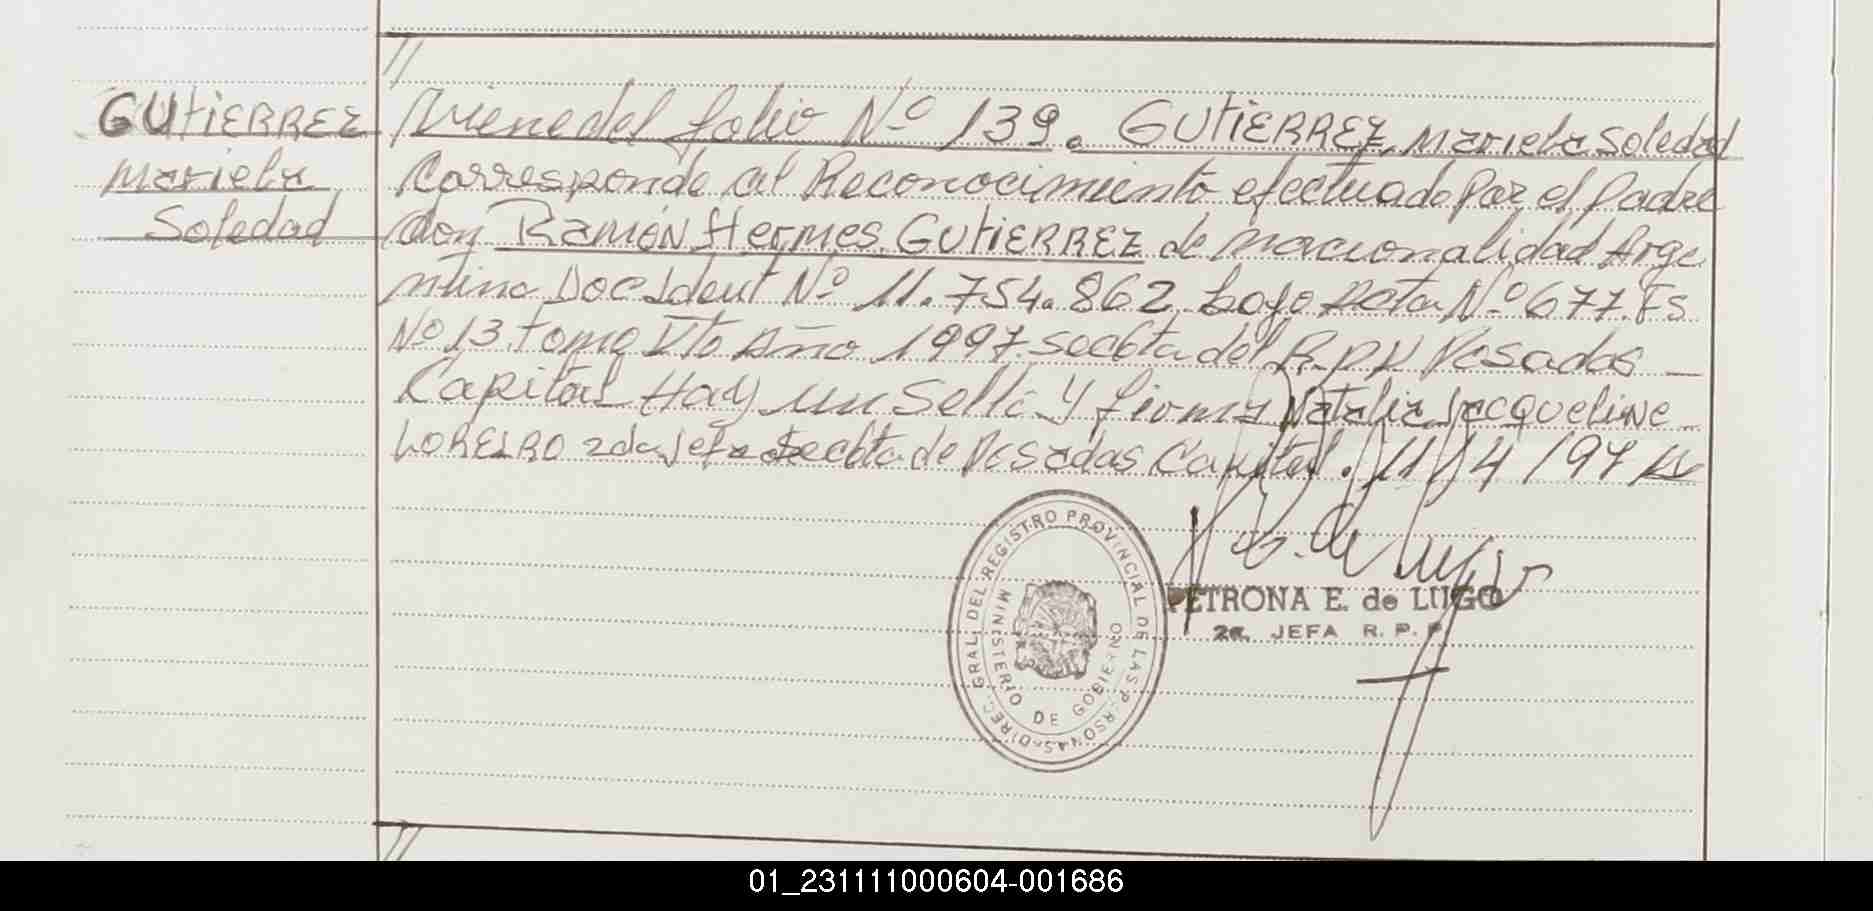 //
GUTIERREZ
Mariela
Soledad
Viene del folio Nº 139. GUTIERREZ, Mariela Soledad
Corresponde al Reconocimiento efectuado por el padre
don Ramón Hermes GUTIERREZ de nacionalidad Arge
ntina Doc Ident Nº 11.754.862 bajo Acta Nº 677. Fs
Nº 13 tomo Vto Año 1997. Seccta del R.P.P Posadas —
Capital Hay un Sello y firma Natalia Jacqueline
LOREIRO 2da Jefa Seccta de Posadas Capital. 11/4/97
DIREC. GRAL. DEL REGISTRO PROVINCIAL DE LAS PERSONAS
MINISTERIO DE GOBIERNO
PETRONA E. de LUGO
2a. JEFA R. P. P.
//
01_231111000604-001686